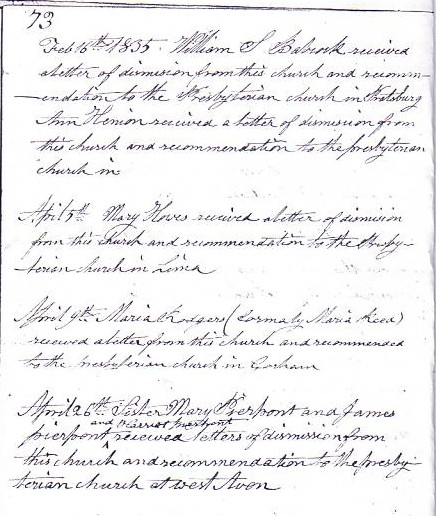 73
Feb 16th 1835. William S Babcock received
a letter of dismission from this church and recomm-
-endation to the Presbyterian church in Pratsburg
Ann Hemion received a letter of dismission from
this church and recommendation to the presbyterian
church in
April 5th Mary Howes received a letter of dismission
from this church and recommendation to the Presby-
terian church in Lima
April 9th Maria Rodgers (formaly Maria Reed)
received a letter from this church and recommended
to the presbyterian church in Gorham
April 26th Sister Mary Pierpont and James
and Harriot Pierpont
pierpont received letters of dismission from
this church and recommendation to the presby-
terian church at west Avon